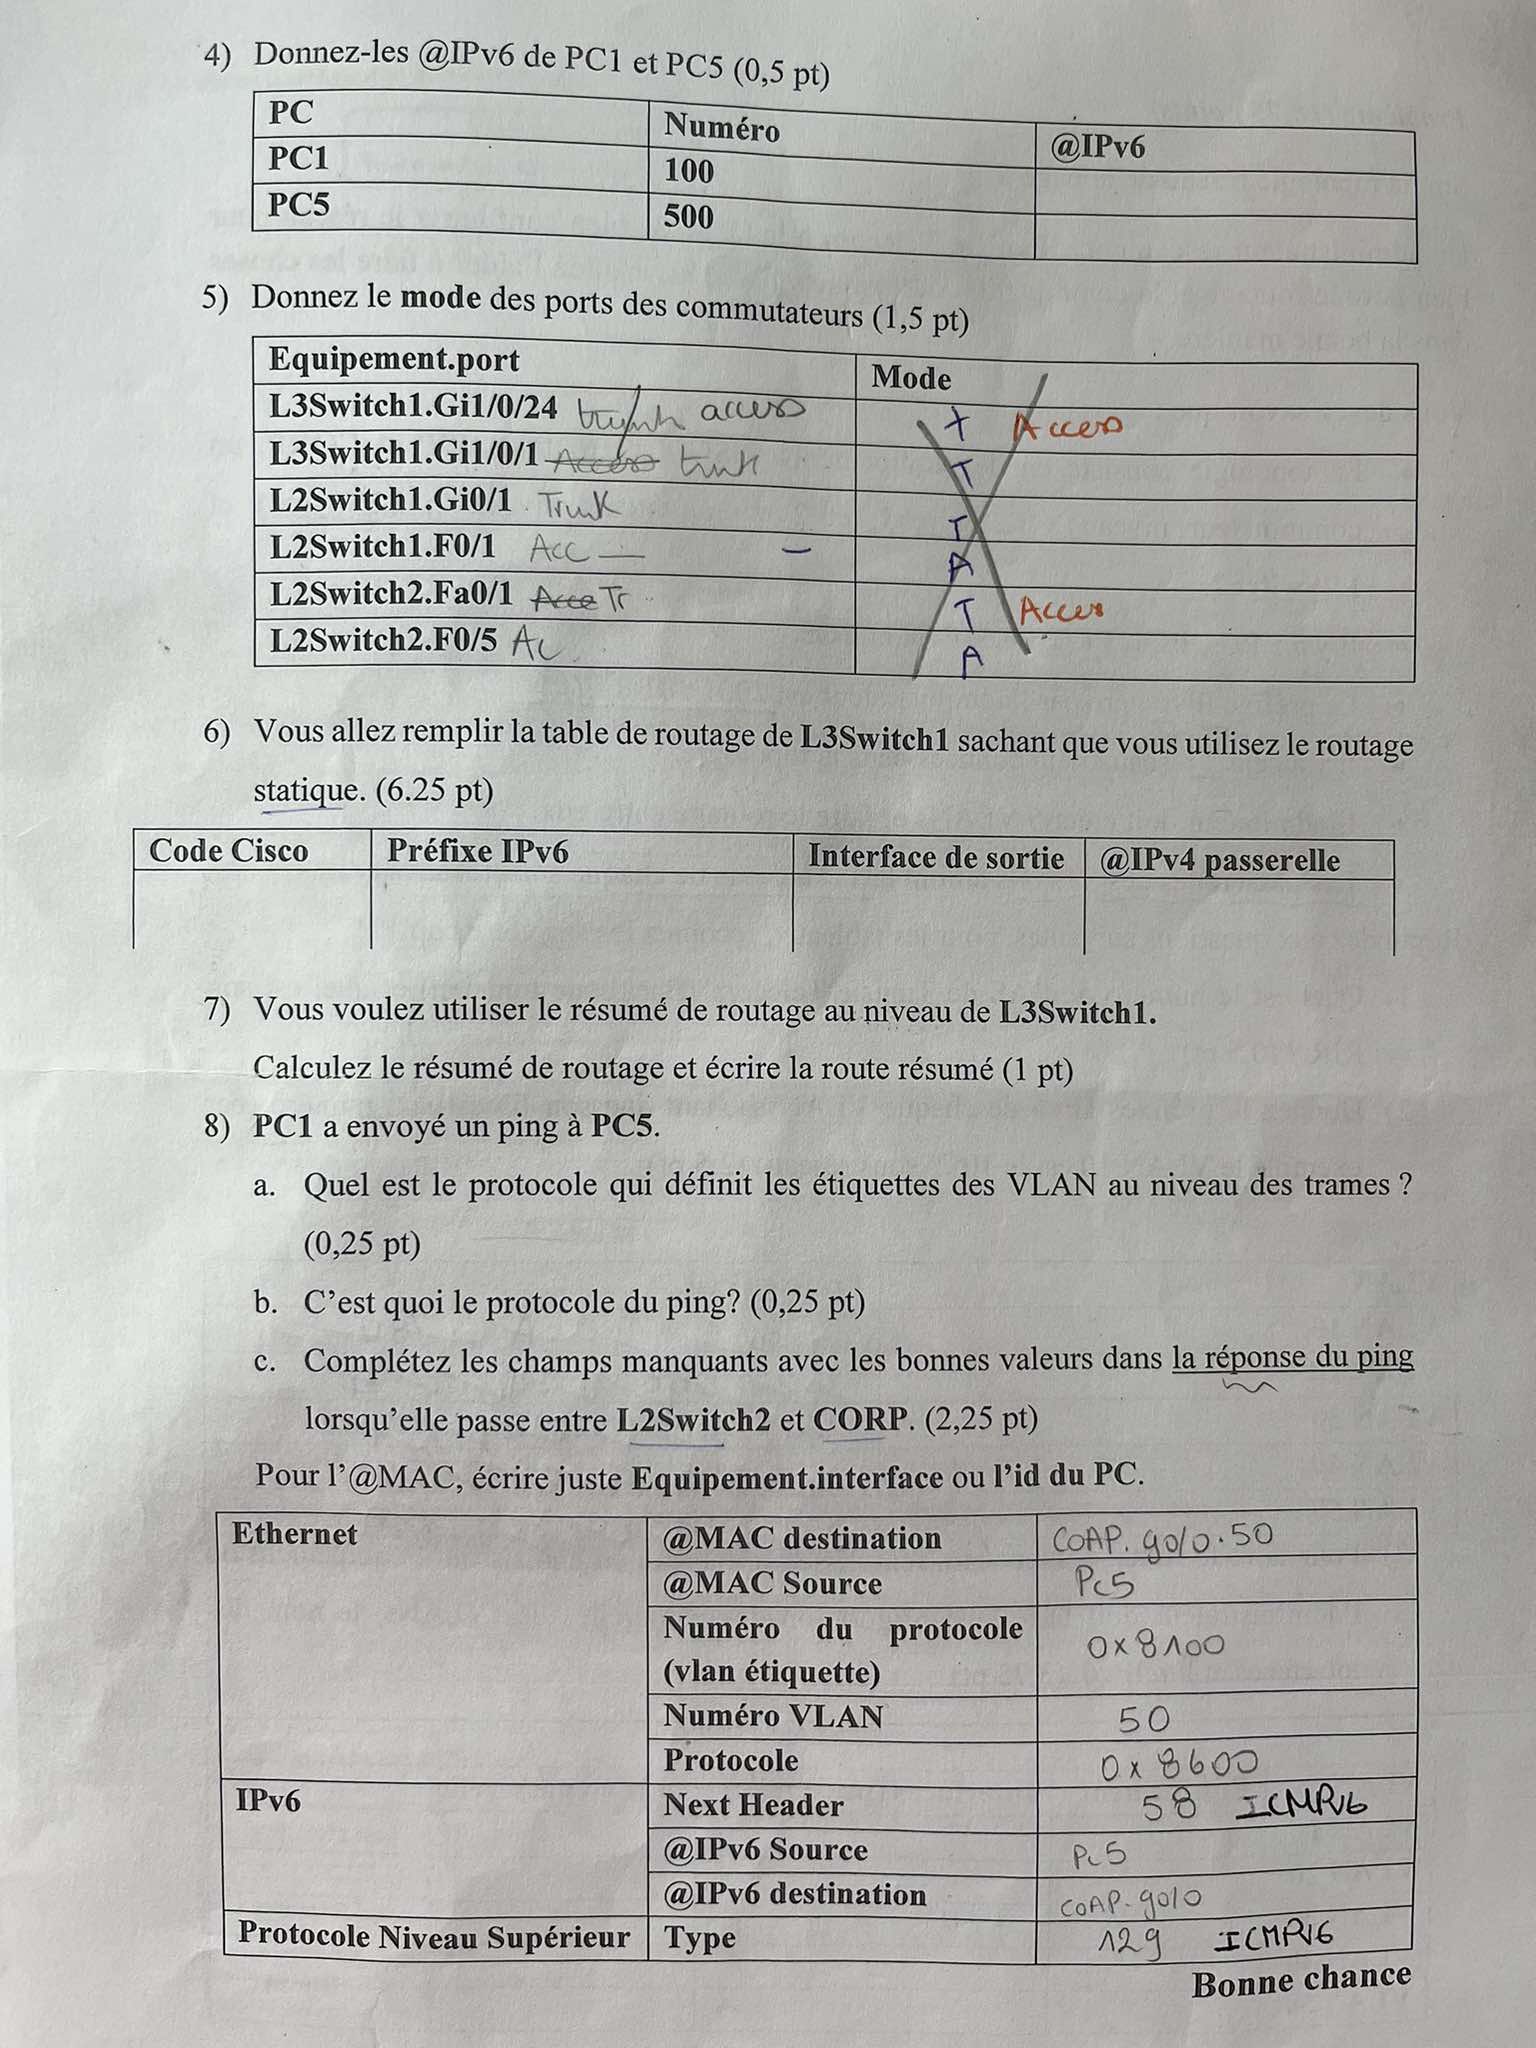 4) Donnez-les @IPv6 de PC1 et PC5 (0,5 pt)
PC Numéro @IPv6
PC1 100
PC5 500
5) Donnez le mode des ports des commutateurs (1,5 pt)
Equipement.port Mode
L3Switch1.Gi1/0/24 acces Acces
L3Switch1.Gi1/0/1 Acces trunk T
L2Switch1.Gi0/1 Trunk T
L2Switch1.F0/1 Acc — – A
L2Switch2.Fa0/1 Acce Tr T Acces
L2Switch2.F0/5 Ac A
6) Vous allez remplir la table de routage de L3Switch1 sachant que vous utilisez le routage
statique. (6.25 pt)
Code Cisco Préfixe IPv6 Interface de sortie @IPv4 passerelle
7) Vous voulez utiliser le résumé de routage au niveau de L3Switch1.
Calculez le résumé de routage et écrire la route résumé (1 pt)
8) PC1 a envoyé un ping à PC5.
a. Quel est le protocole qui définit les étiquettes des VLAN au niveau des trames ?
(0,25 pt)
b. C’est quoi le protocole du ping? (0,25 pt)
c. Complétez les champs manquants avec les bonnes valeurs dans la réponse du ping
lorsqu’elle passe entre L2Switch2 et CORP. (2,25 pt)
Pour l’@MAC, écrire juste Equipement.interface ou l’id du PC.
Ethernet @MAC destination COAP. go/0.50
@MAC Source Pc5
Numéro du protocole
(vlan étiquette) 0x8100
Numéro VLAN 50
Protocole 0x8600
IPv6 Next Header 58 ICMPv6
@IPv6 Source Pc5
@IPv6 destination COAP.go/0
Protocole Niveau Supérieur Type 129 ICMPV6
Bonne chance